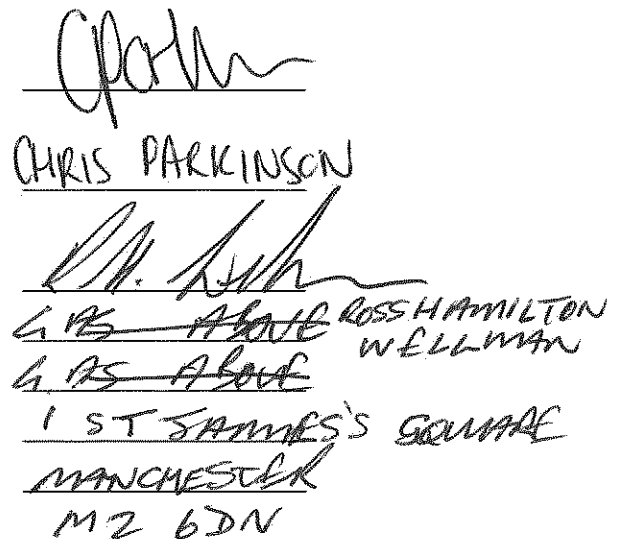 CHRIS PARKINSON
AS ABOVE ROSS HAMILTON
WELLMAN
AS ABOVE
1 ST JAMES'S SQUARE
MANCHESTER
M2 6DN